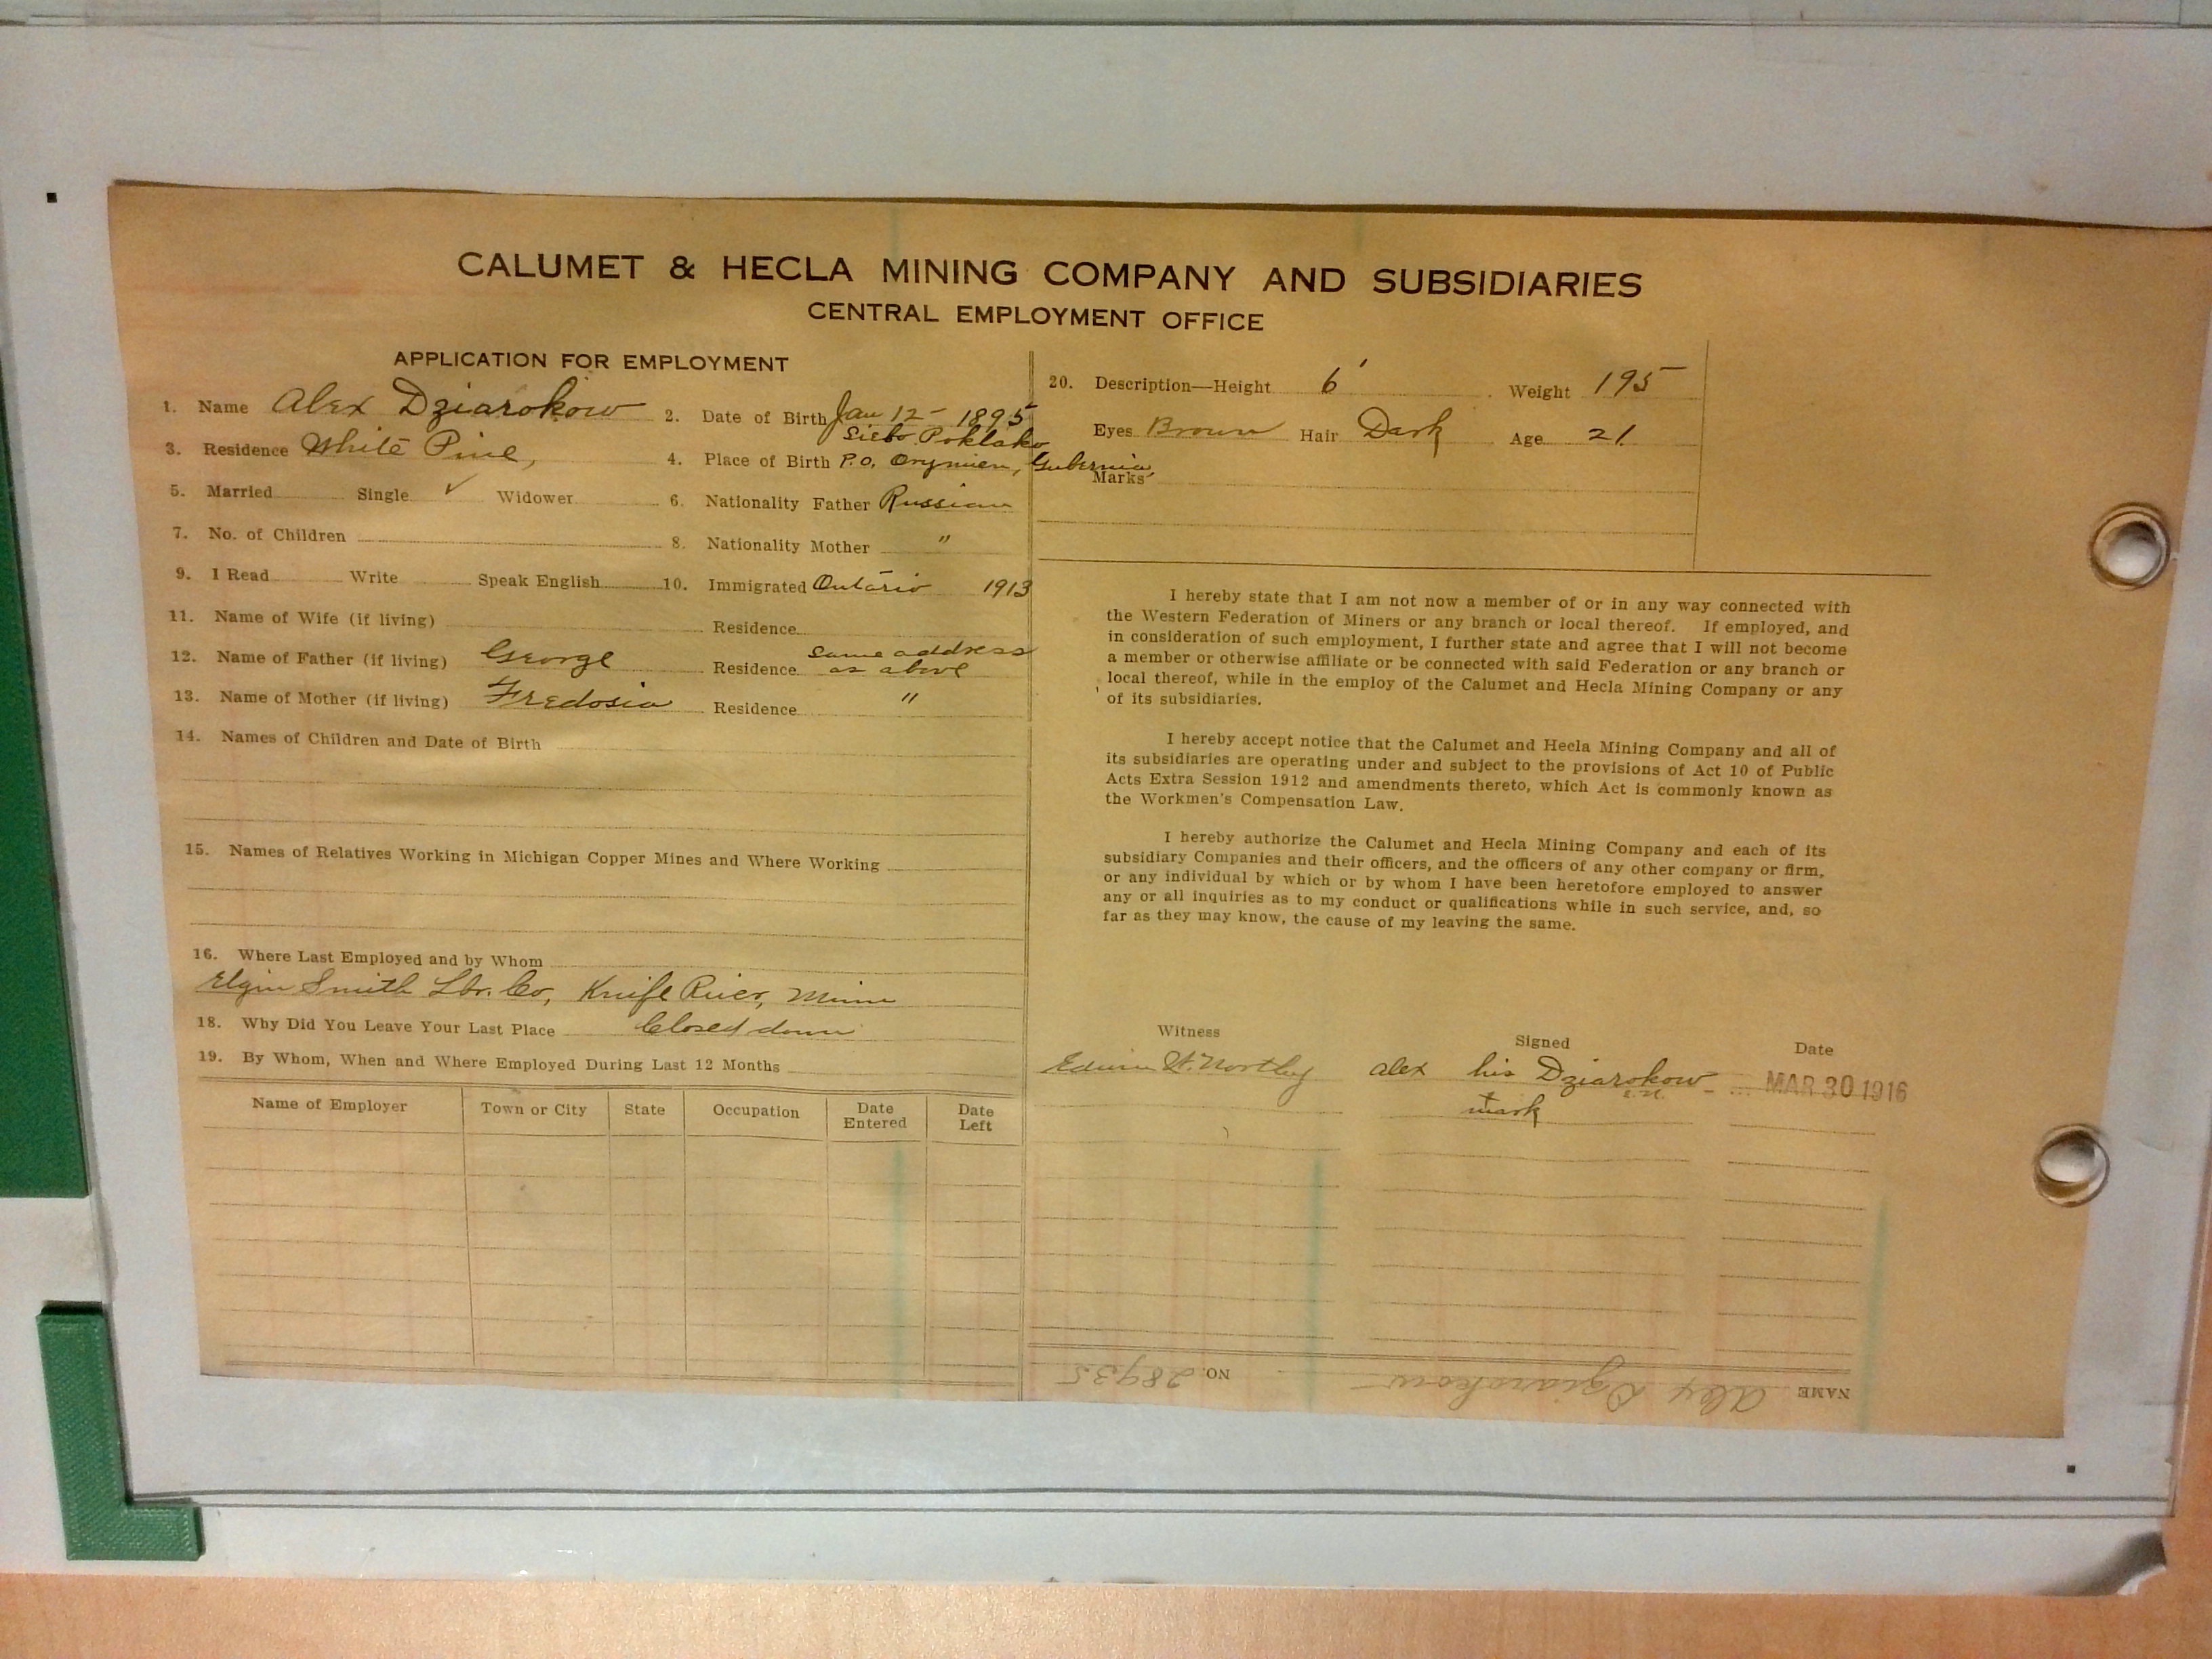 CALUMET & HECLA MINING COMPANY AND SUBSIDIARIES
CENTRAL EMPLOYMENT OFFICE
APPLICATION FOR EMPLOYMENT
1. Name Alex Dziarokow 2. Date of Birth Jan 12 - 1895
3. Residence White Pine, 4. Place of Birth Sielo Poklako
P.O. Orymien, Gubernia,
5. Married Single ✓ Widower 6. Nationality Father Russian
7. No. of Children 8. Nationality Mother "
9. I Read Write Speak English 10. Immigrated Ontario 1913
11. Name of Wife (if living) Residence
12. Name of Father (if living) George Residence same address
as above
13. Name of Mother (if living) Fredosia Residence "
14. Names of Children and Date of Birth
15. Names of Relatives Working in Michigan Copper Mines and Where Working
16. Where Last Employed and by Whom
Elgin Smith Lbr. Co, Knife River, Minn
18. Why Did You Leave Your Last Place Closed down
19. By Whom, When and Where Employed During Last 12 Months
Name of Employer Town or City State Occupation Date Entered Date Left
20. Description—Height 6' Weight 195
Eyes Brown Hair Dark Age 21
Marks
I hereby state that I am not now a member of or in any way connected with
the Western Federation of Miners or any branch or local thereof. If employed, and
in consideration of such employment, I further state and agree that I will not become
a member or otherwise affiliate or be connected with said Federation or any branch or
local thereof, while in the employ of the Calumet and Hecla Mining Company or any
of its subsidiaries.
I hereby accept notice that the Calumet and Hecla Mining Company and all of
its subsidiaries are operating under and subject to the provisions of Act 10 of Public
Acts Extra Session 1912 and amendments thereto, which Act is commonly known as
the Workmen's Compensation Law.
I hereby authorize the Calumet and Hecla Mining Company and each of its
subsidiary Companies and their officers, and the officers of any other company or firm,
or any individual by which or by whom I have been heretofore employed to answer
any or all inquiries as to my conduct or qualifications while in such service, and, so
far as they may know, the cause of my leaving the same.
Witness Signed Date
Edwin H. Northey Alex his Dziarokow MAR 30 1916
mark E.N.
NAME Alex Dziarokow NO. 28935